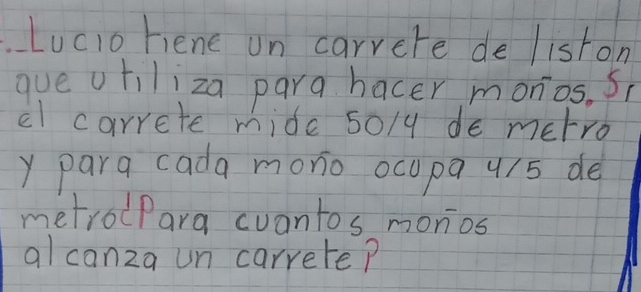 ._Lucio tiene un carrete de liston
que utiliza para hacer moños. Si
el carrete mide 50/4 de metro
y para cada moño ocupa 4/5 de
metro¿Para cuantos moños
alcanza un carrete?